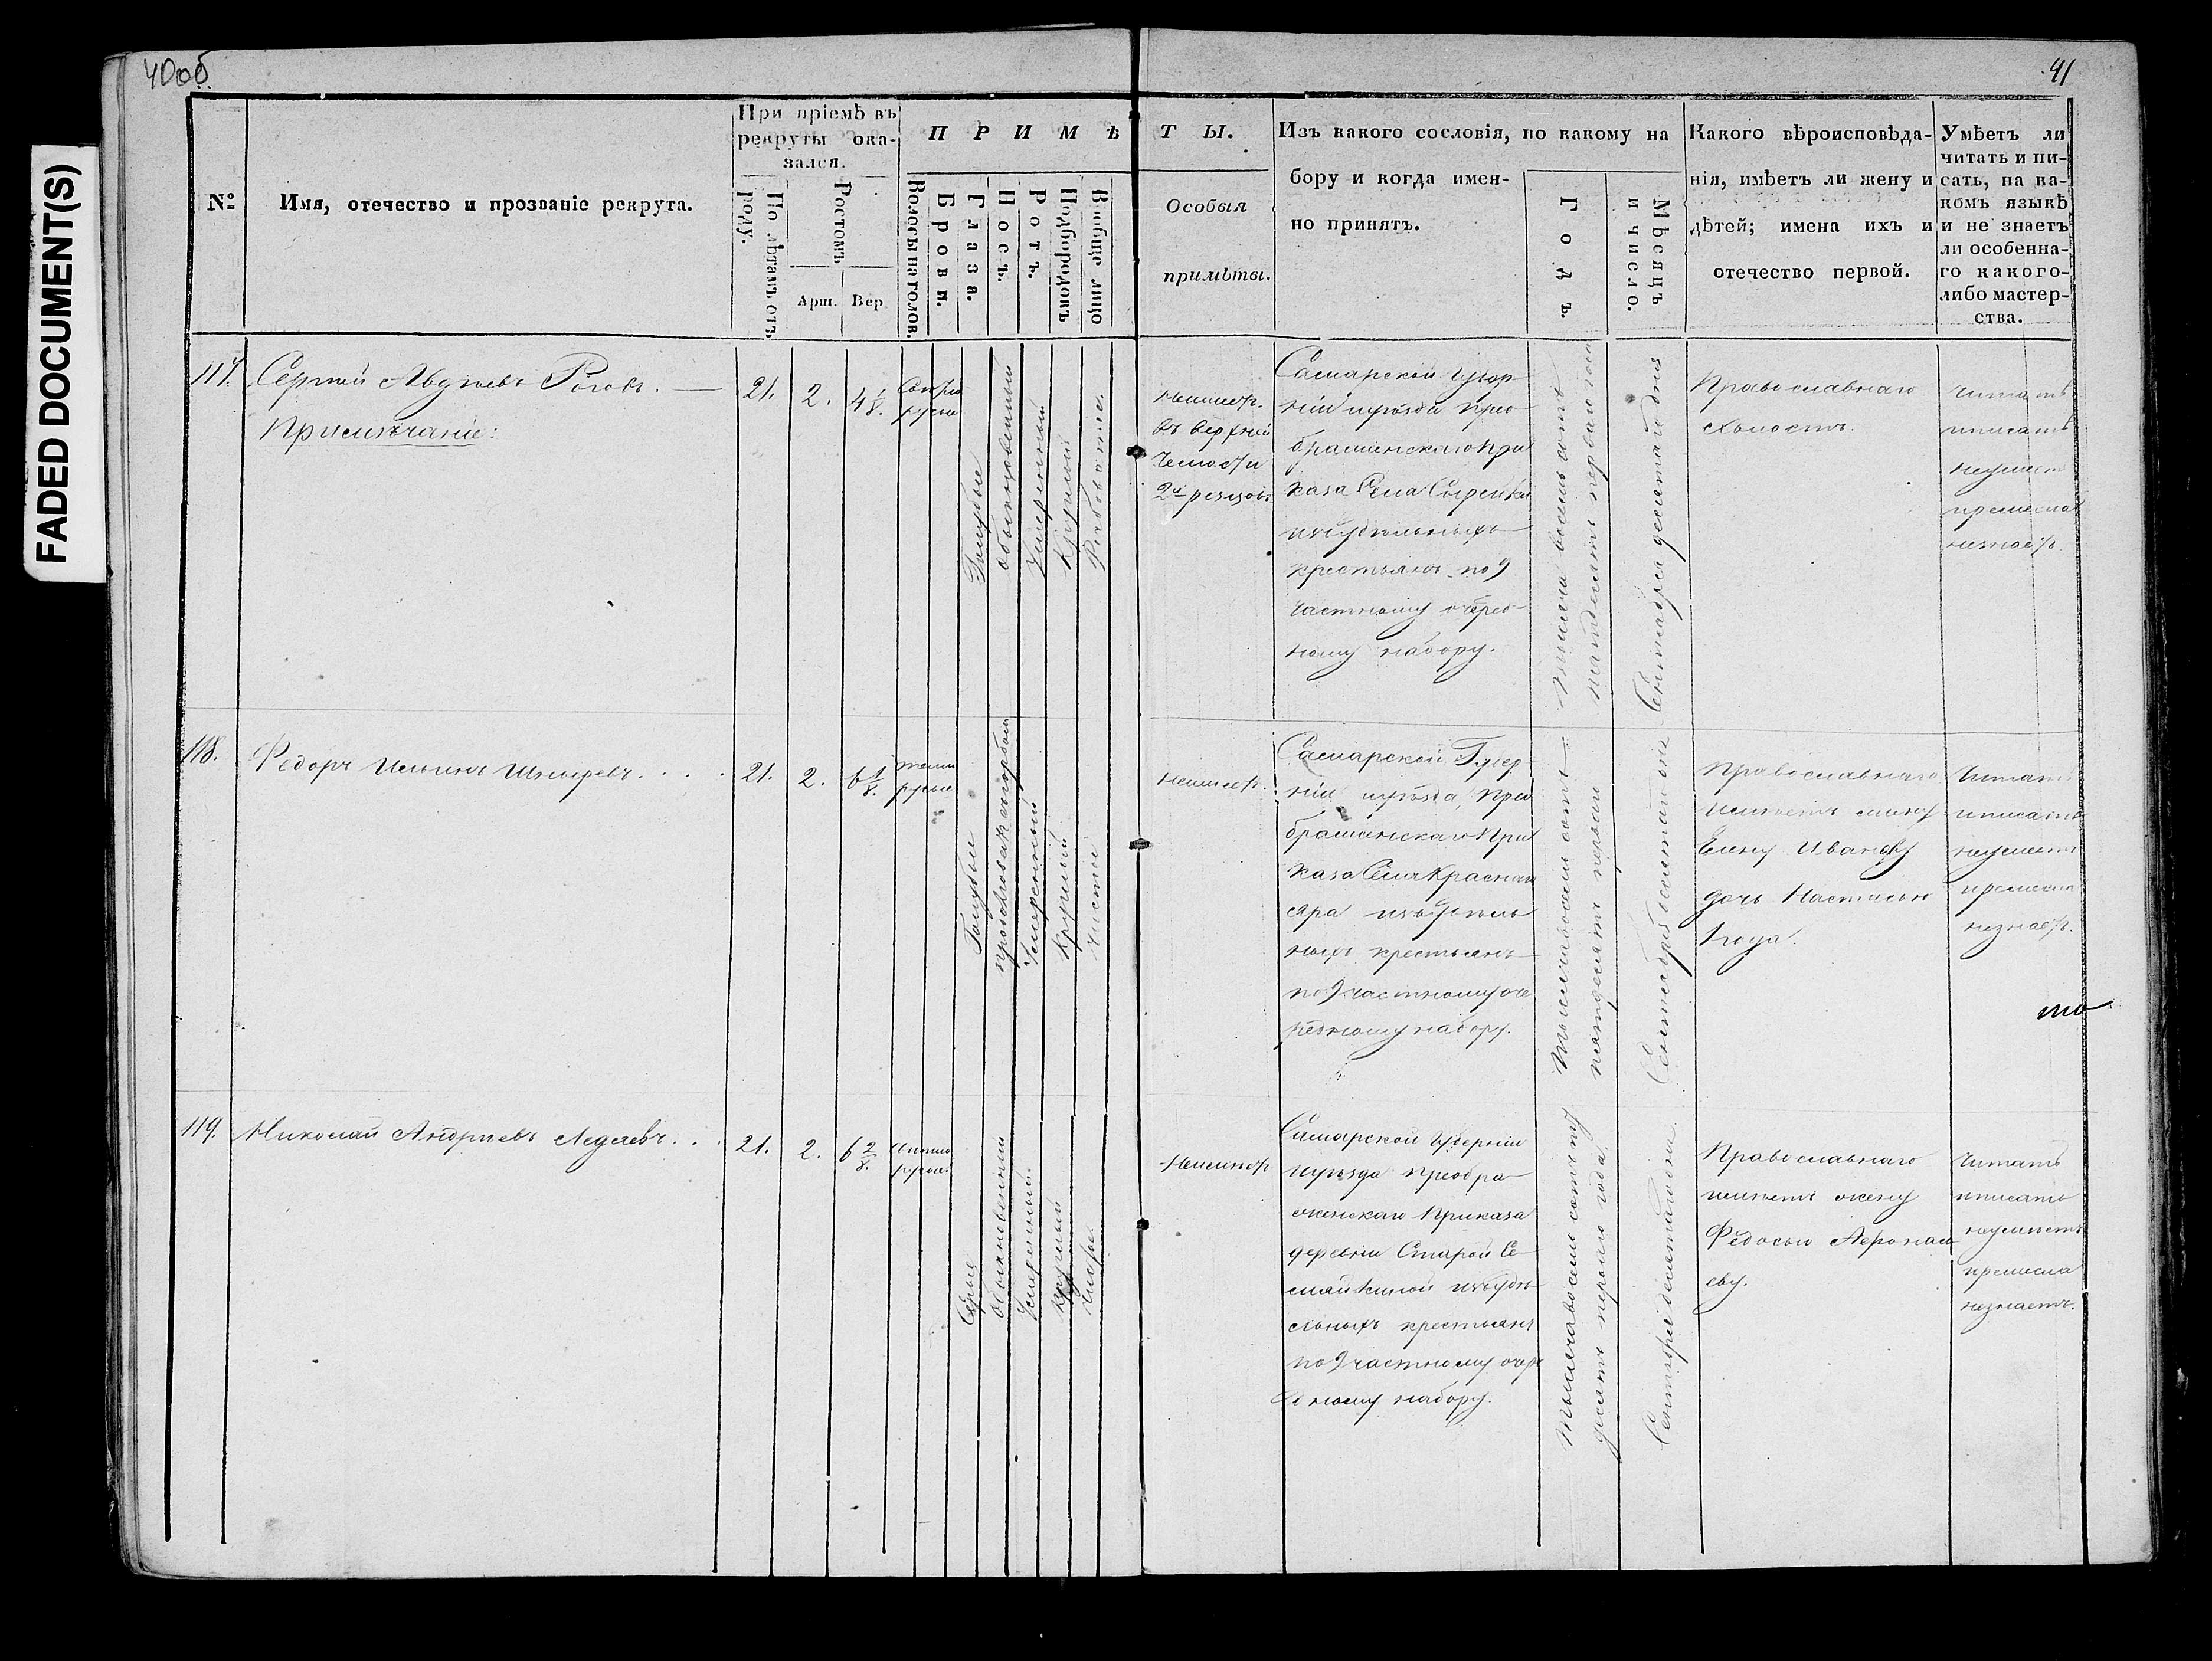 40об
41
FADED DOCUMENT(S)
№
Имя, отечество и прозваніе рекрута.
При пріемѣ въ
рекруты ока-
зался.
По лѣтамъ отъ
роду.
Ростомъ
Арш.
Вер
П Р И М Ѣ
Волосы на голов.
Брови.
Глаза.
Носъ.
Ротъ.
Подбородокъ
Вообще лицо
Т Ы.
Особыя
примѣты.
Изъ какого сословія, по какому на
бору и когда имен-
но принятъ.
Годъ.
Мѣсяцъ
и число.
Какого вѣроисповѣда-
нія, имѣетъ ли жену и
дѣтей; имена ихъ и
отечество первой.
Умѣетъ ли
читать и пи-
сать, на ка-
комъ языкѣ
и не знаетъ
ли особенна-
го какого-
либо мастер-
ства.
117.
Сергѣй Авдѣевъ Роговъ.
Примѣчаніе:
21.
2.
4 1/8.
русые
Голубые
обыкновенный
Умеренный
Круглый
Рябоватое.
неимеетъ.
въ верхней
Челюсти
2хъ резцовъ
Самарской Губер-
ніи иуѣзда Прео-
браженскаго При
каза Села
изъ Удѣльныхъ
крестьянъ по 9
частному очеред-
ному набору.
тысяча восемь сотъ
пятьдесятъ перваго года
Сентября десятаго дня
Православнаго
холостъ.
Читать
иписать
неумеетъ
ремесла
незнаетъ.
118.
Федоръ Ильинъ
21.
2.
6 1/8.
русые
Голубые
Умеренный
Круглый
чистое
Неимеетъ.
Самарской Губер-
ніи иуѣзда, Прео
браженскаго При
каза Села Краснаго
Яра изъ Удѣль
ныхъ крестьянъ
по 9 частному оче
редному набору.
Православнаго
имѣетъ жену
Елену Иванову
дочь Настасью
1 года.
Читать
иписать
неумеетъ
ремесла
незнаетъ.
то
119.
Николай Андрѣевъ
21.
2.
6 2/8.
русые.
Серые
обыкновенный
Умеренный.
круглый
чистое.
Неимѣетъ
Самарской Губерніи
иуѣзда Преобра
женскаго Приказа
деревни Старой Се
майкиной изъ Удѣ
льныхъ крестьянъ
по 9 частному очере
дному набору.
Православнаго
имѣетъ жену
Федосью Афонась
еву.
Читать
иписать
неумѣетъ
ремесла
незнаетъ.